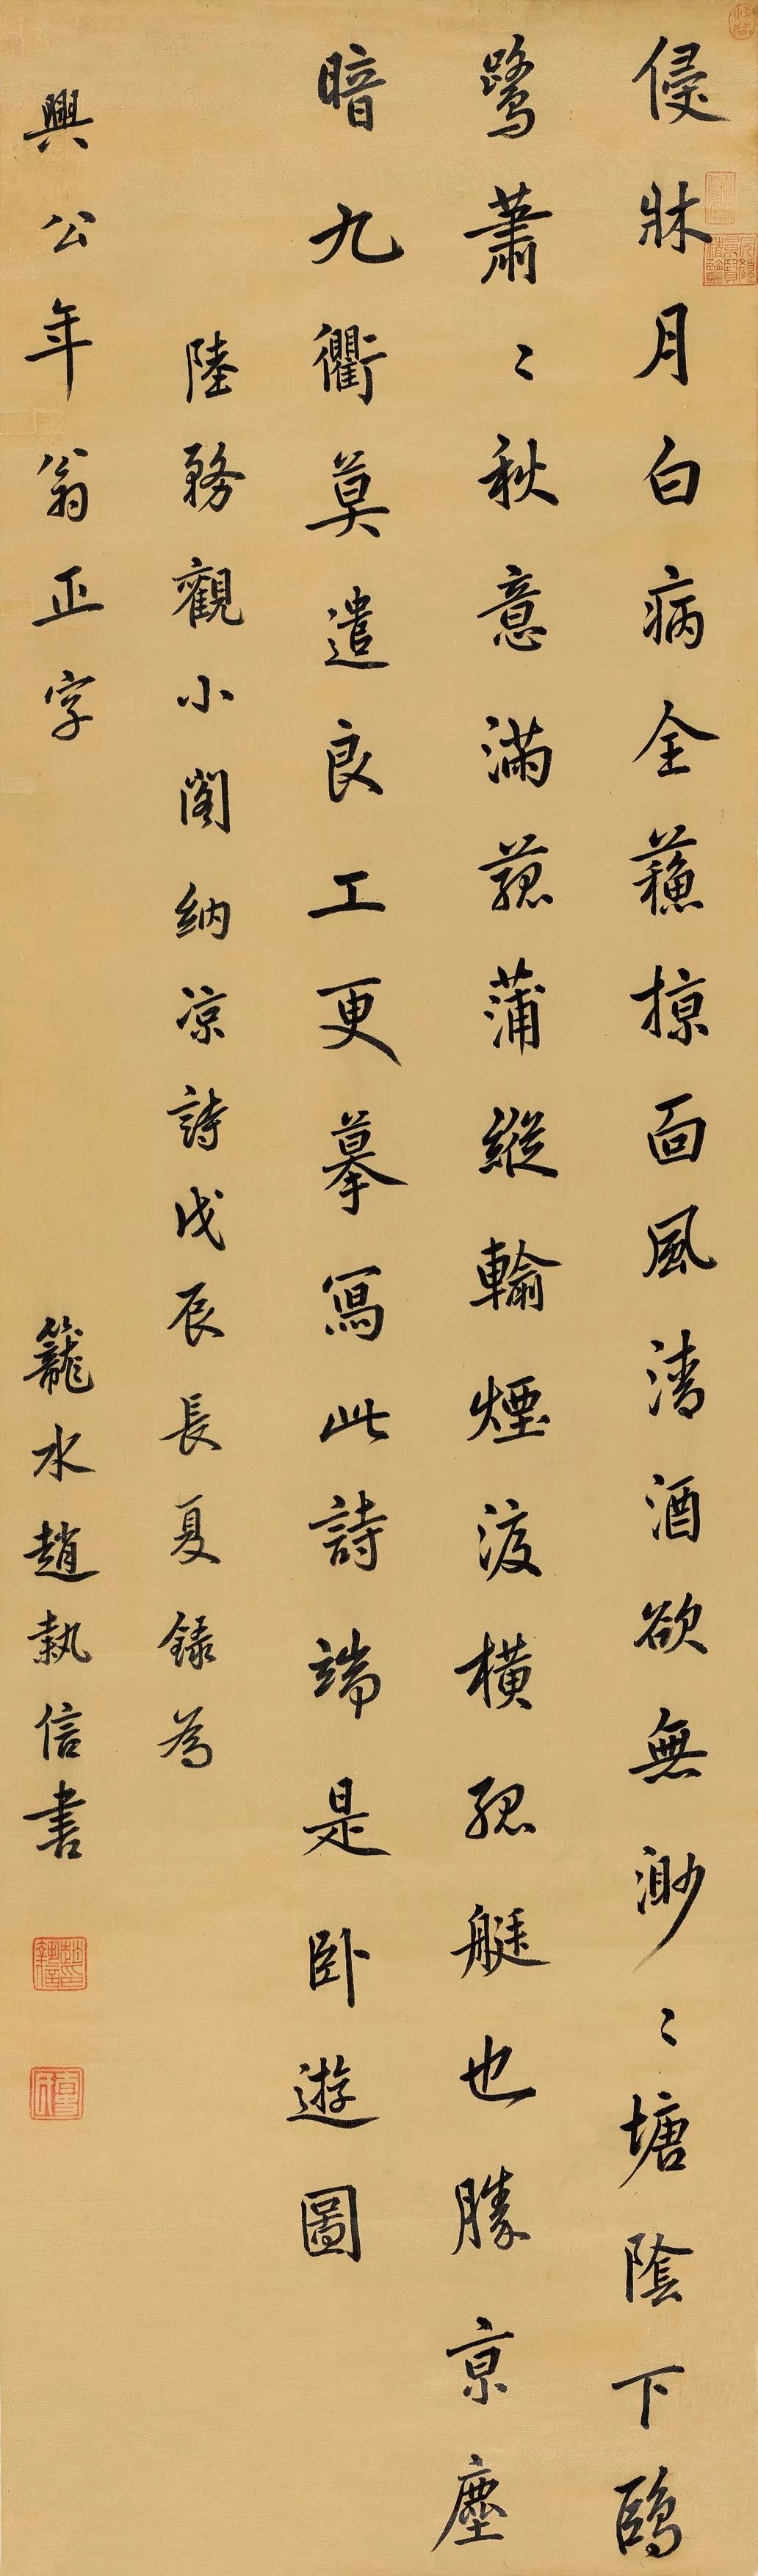 侵牀月白病全蘓掠面風清酒欲無渺〻塘陰下鷗
鷺蕭〻秋意滿菰蒲縱輸煙渡橫孤艇也勝京塵
暗九衢莫遣良工更摹寫此詩端是卧遊圖
陸務觀小閣納凉詩戊辰長夏錄為
興公年翁正字
籠水趙執信書
趙執信印